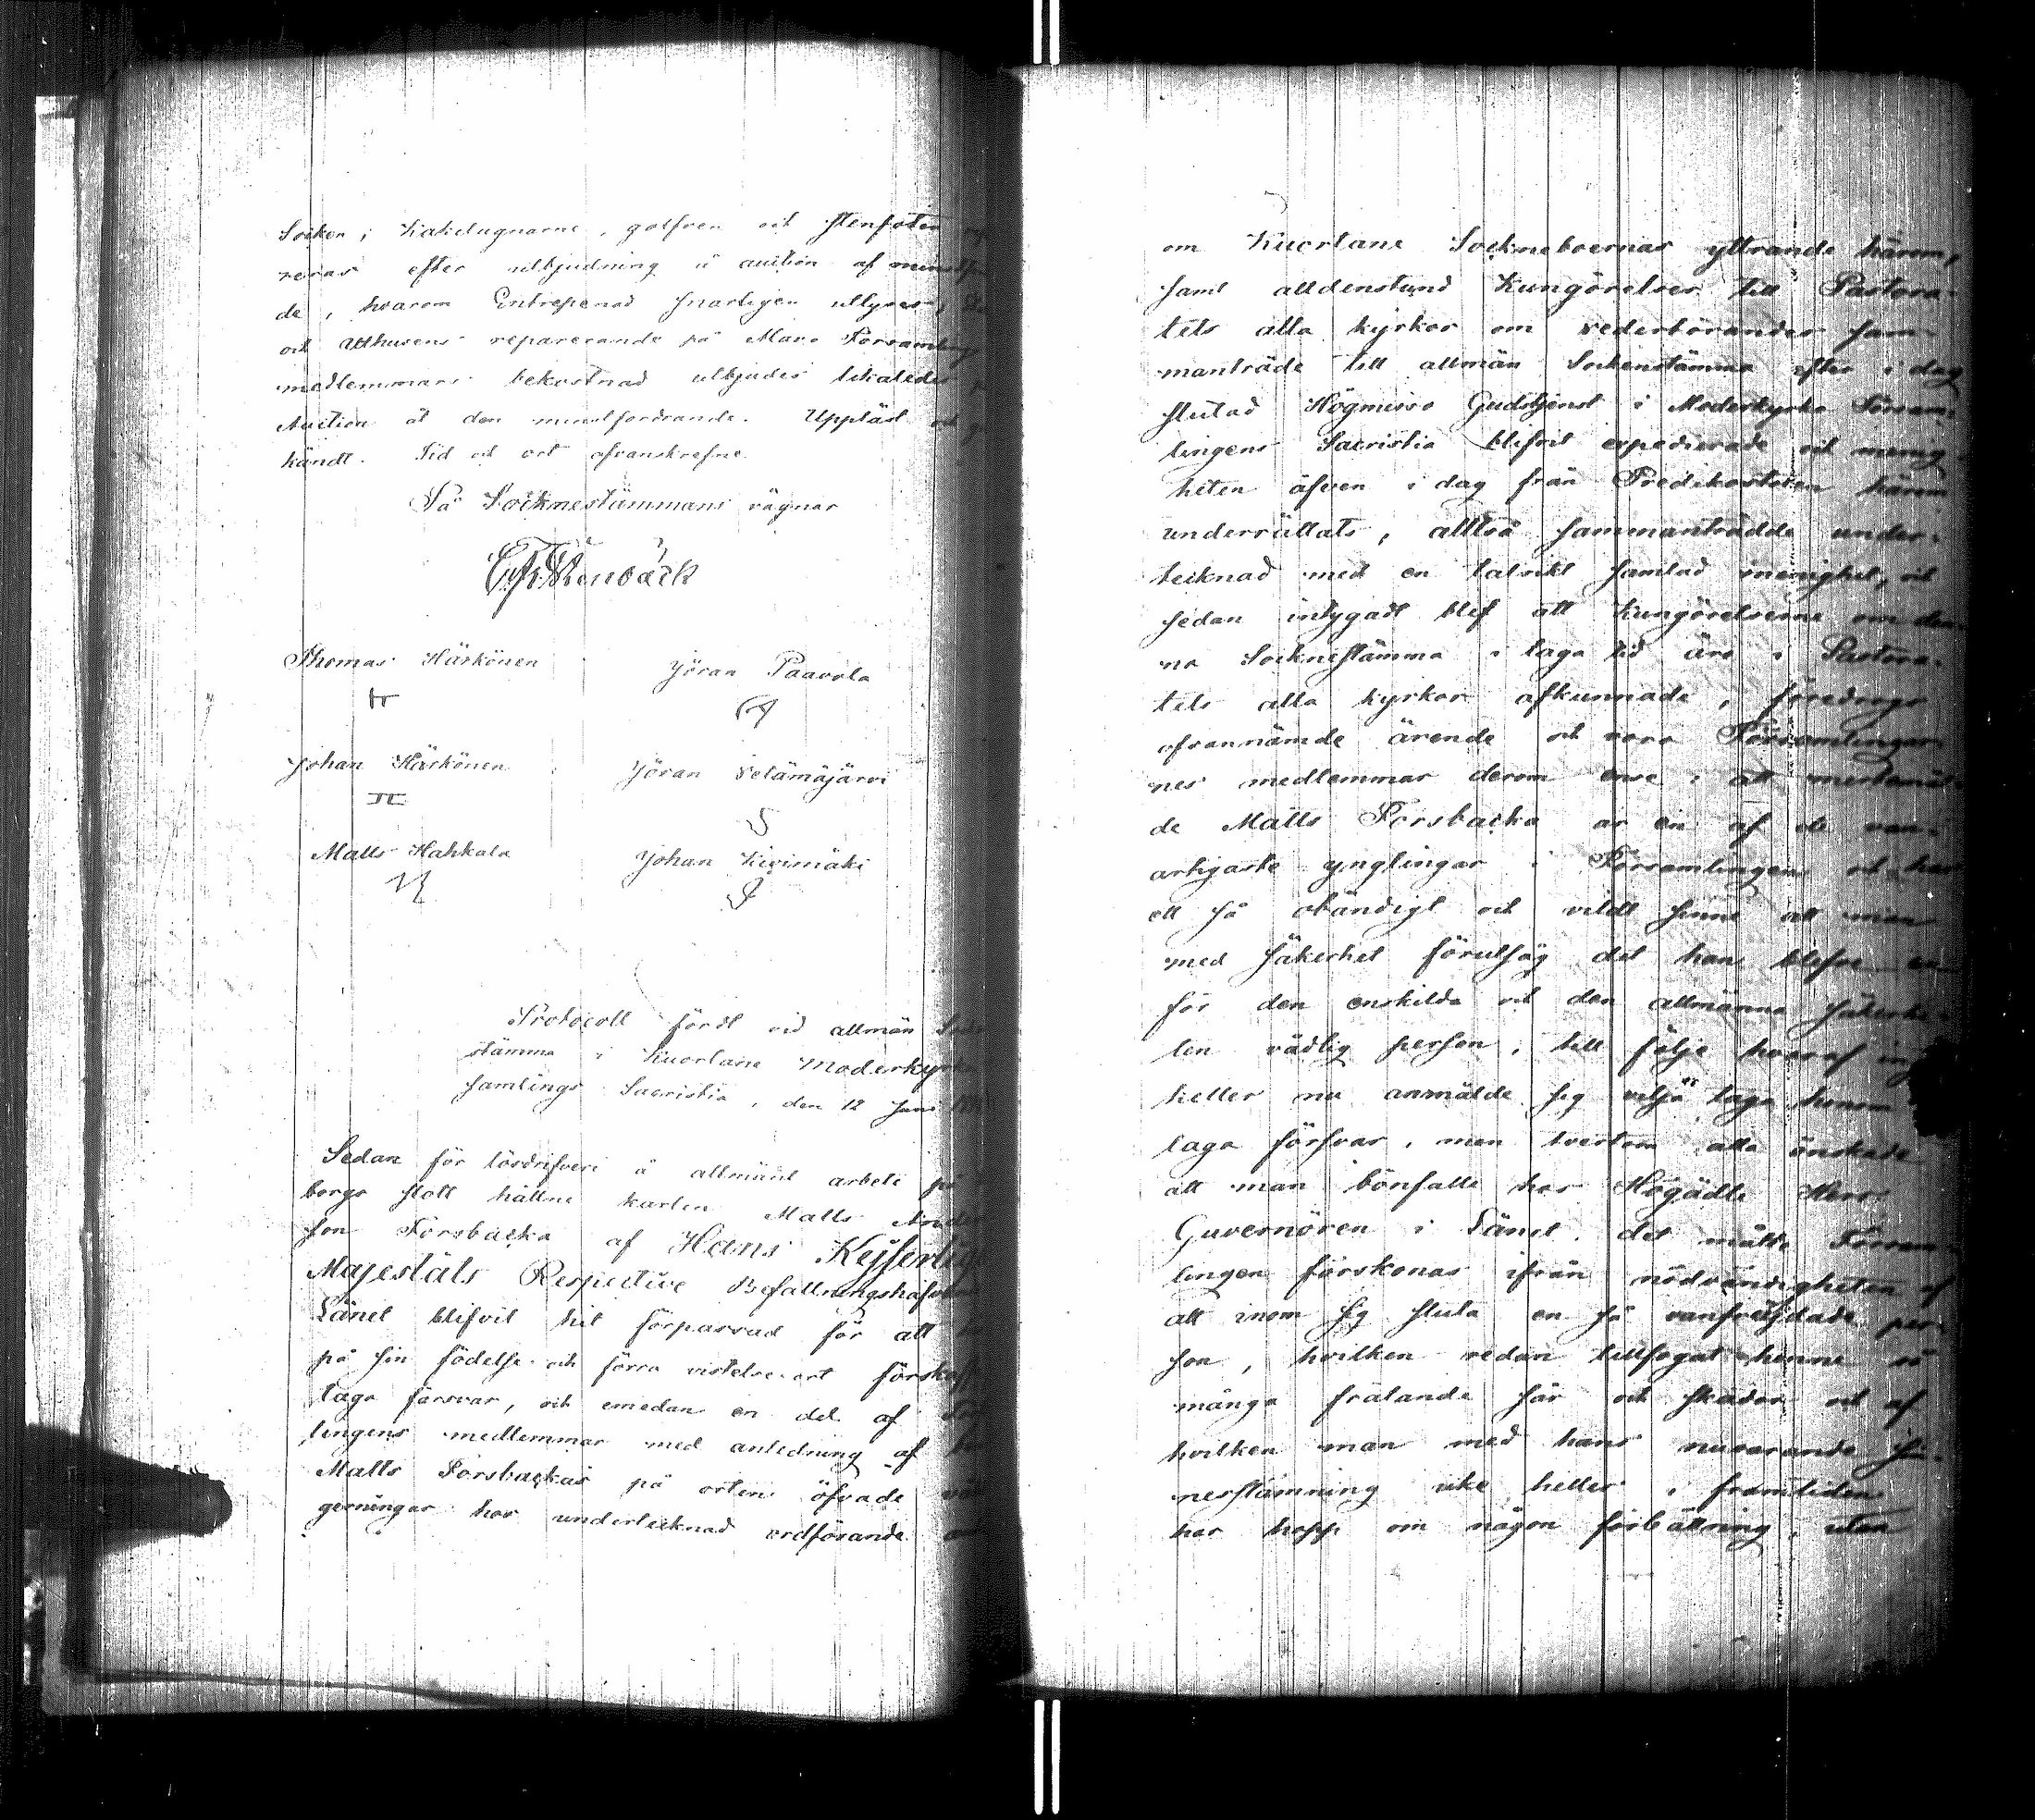 Socken; Kakelugnarne, golfven och stenfoten
reras efter utbjudning å auction af minstfor
de, hvarom Entreprenad snarligen utlyses;
och Uthusens reparerande på Mavo Församlings
medlemmars bekostnad utbjudes likaledes
Auction åt den minstfordrande. Uppläst och
kändt. Tid och ort ofvanskrefne.
På Socknestämmans vägnar
Thomas Härkönen Jöran Paavola
Johan Härkönen Jöran Vetämäjärvi
II
Matts Hahkala Johan Kivimäki
Protocoll fördt vid allmän
stämma i Kuortane Moderkyrko
samlings Sacristia, den 12 Juni
Sedan för lösdrifveri å allmänt arbete på
borgs slott hållne karlen Matts Anders
son Forsbacka af Hans Kejserliga
Majestäts Respective Befallningshafvande
Länet blifvit hit förpassad för att
på sin födelse och förra vistelse-ort förskaffa
laga försvar, och emedan en del af För
lingens medlemmar med anledning af
Matts Forsbackas på orten öfvade
gerningar hos undertecknad ordförande
om Kuortane Sockneboernas yttrande härom,
samt alldenstund Kungörelser till Pastora-
tets alla kyrkor om vederbörandes sam-
manträde till allmän Sockenstämma efter i dag
slutad Högmesso Gudstjenst i Moderkyrko Försam-
lingens Sacristia blifvit expedierade och menig-
heten äfven i dag från Predikostolen härom
underrättats, alltså sammanträdde under-
tecknad med en talrikt samlad menighet, och
sedan intygadt blef att Kungörelserne om den-
na Socknestämma i laga tid äro i Pastora-
tets alla kyrkor afkunnade, föredrogs
ofvannämde ärende och voro Församlingar-
nes medlemmar derom ense: att merbemäl-
de Matts Forsbacka är en af de van-
artigaste ynglingar i Församlingen och har
ett så obändigt och vildt sinne att man
med säkerhet förutsåg det han blefve en
för den enskilda och den allmänna säkerhe-
ten vådlig person; till följe hvaraf ing
heller nu anmälde sig vilja taga honom i
laga försvar, men tvertom alla önskade
att man bönfalle hos Högädle Herr
Guvernören i Länet, det måtte Försam-
lingen förskonas ifrån nödvändigheten af
att inom sig sluta en så vanfrejdade per-
son, hvilken redan tillfogat henne så
många frätande sår och skador och af
hvilken man med hans nuvarande sin-
nesstämning icke heller i framtiden
har hopp om någon förbättring, utan